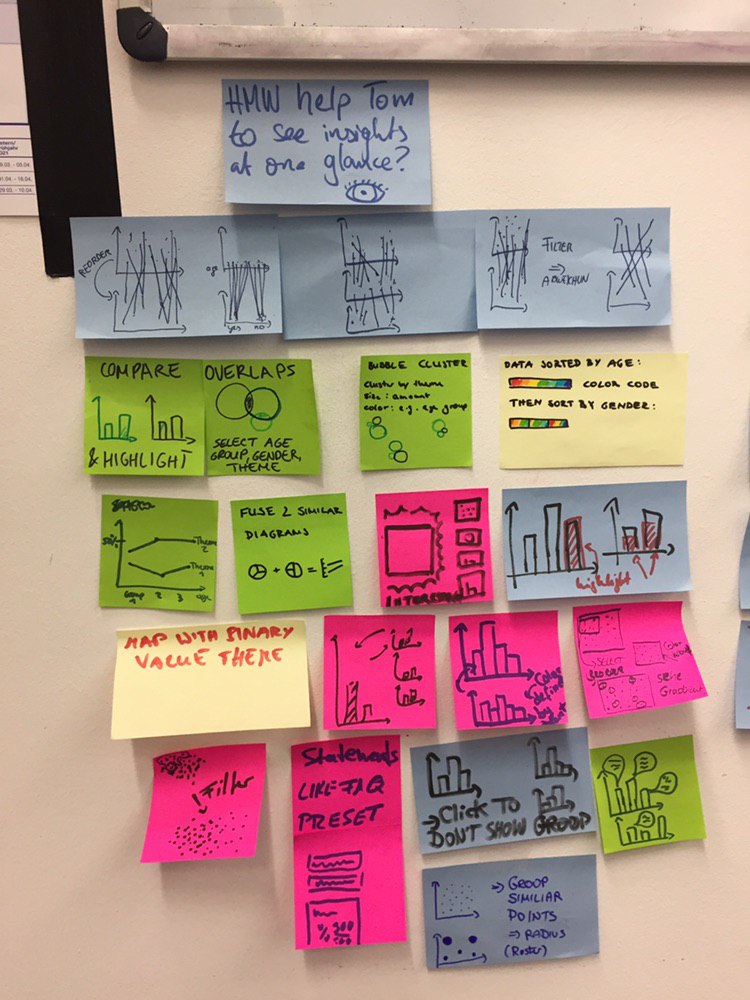 HMW help Tom
to see insights
at one glance?
REORDER
age
yes no
FILTER
⇒
COMPARE
& HIGHLIGHT
OVERLAPS
SELECT AGE
GROUP, GENDER,
THEME
BUBBLE CLUSTER
Cluster by theme
size: amount
color: e.g. age group
DATA SORTED BY AGE:
COLOR CODE
THEN SORT BY GENDER:
50%
Theme
2
Theme
Group
1 2 3 age
FUSE 2 SIMILAR
DIAGRAMS
+ =
highlight
MAP WITH BINARY
VALUE THEME
Color
define
by
→ SELECT
REORDER
Gradient
Filter
Statements
LIKE FAQ
PRESET
→ Click TO
DON'T SHOW GROUP
⇒ GROUP
SIMILIAR
POINTS
⇒ RADIUS
(Raster)